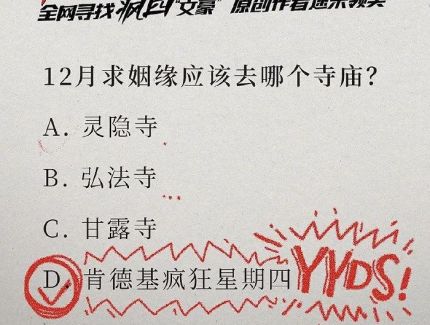 全网寻找疯四“文豪” 原创作者速来领奖
12月求姻缘应该去哪个寺庙？
A. 灵隐寺
B. 弘法寺
C. 甘露寺
D. 肯德基疯狂星期四 YYDS!